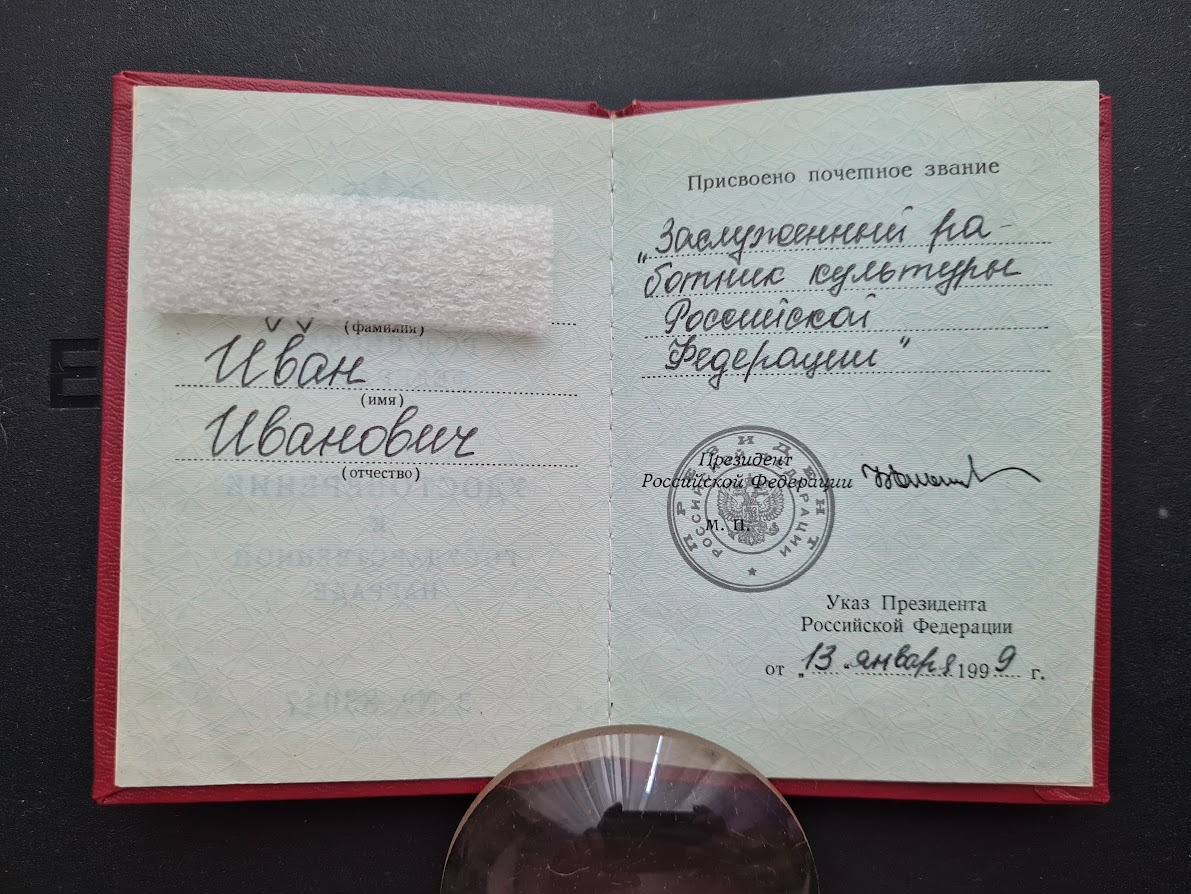 (фамилия)
Иван
(имя)
Иванович
(отчество)
Присвоено почетное звание
„Заслуженный ра-
ботник культуры
Российской
Федерации"
ПРЕЗИДЕНТ
РОССИЙСКОЙ ФЕДЕРАЦИИ
Президент
Российской Федерации
М. П.
Указ Президента
Российской Федерации
от „13" января 1999 г.